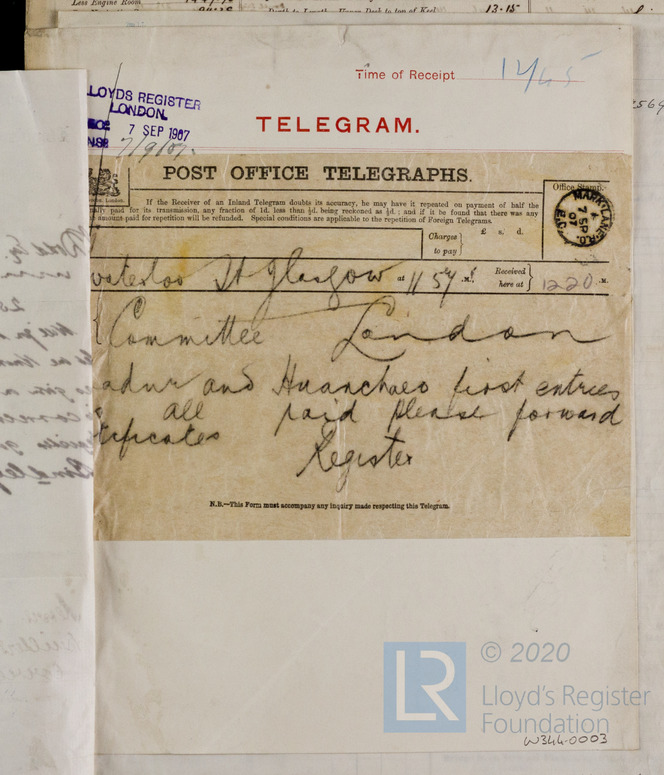 Less Engine Room
Depth to Length, Upper Deck to top of Keel
13·15
Time of Receipt 12/45
LLOYDS REGISTER
LONDON.
7 SEP 1907
7/9/07.
TELEGRAM.
POST OFFICE TELEGRAPHS.
If the Receiver of an Inland Telegram doubts its accuracy, he may have it repeated on payment of half the
paid for its transmission, any fraction of 1d. less than ½d. being reckoned as ½d.; and if it be found that there was any
amount paid for repetition will be refunded. Special conditions are applicable to the repetition of Foreign Telegrams.
Office Stamp.
MARK LANE B.O.
7 SP
07
E.C.
Charges to pay
£ s. d.
Waterloo St Glasgow at 11 57 .M.
Received here at 12 20 .M.
Committee London
adur and Huanchaco first entries
all paid please forward
tificates
Register
N.B.—This Form must accompany any inquiry made respecting this Telegram.
LR
© 2020
Lloyd's Register
Foundation
W344-0003